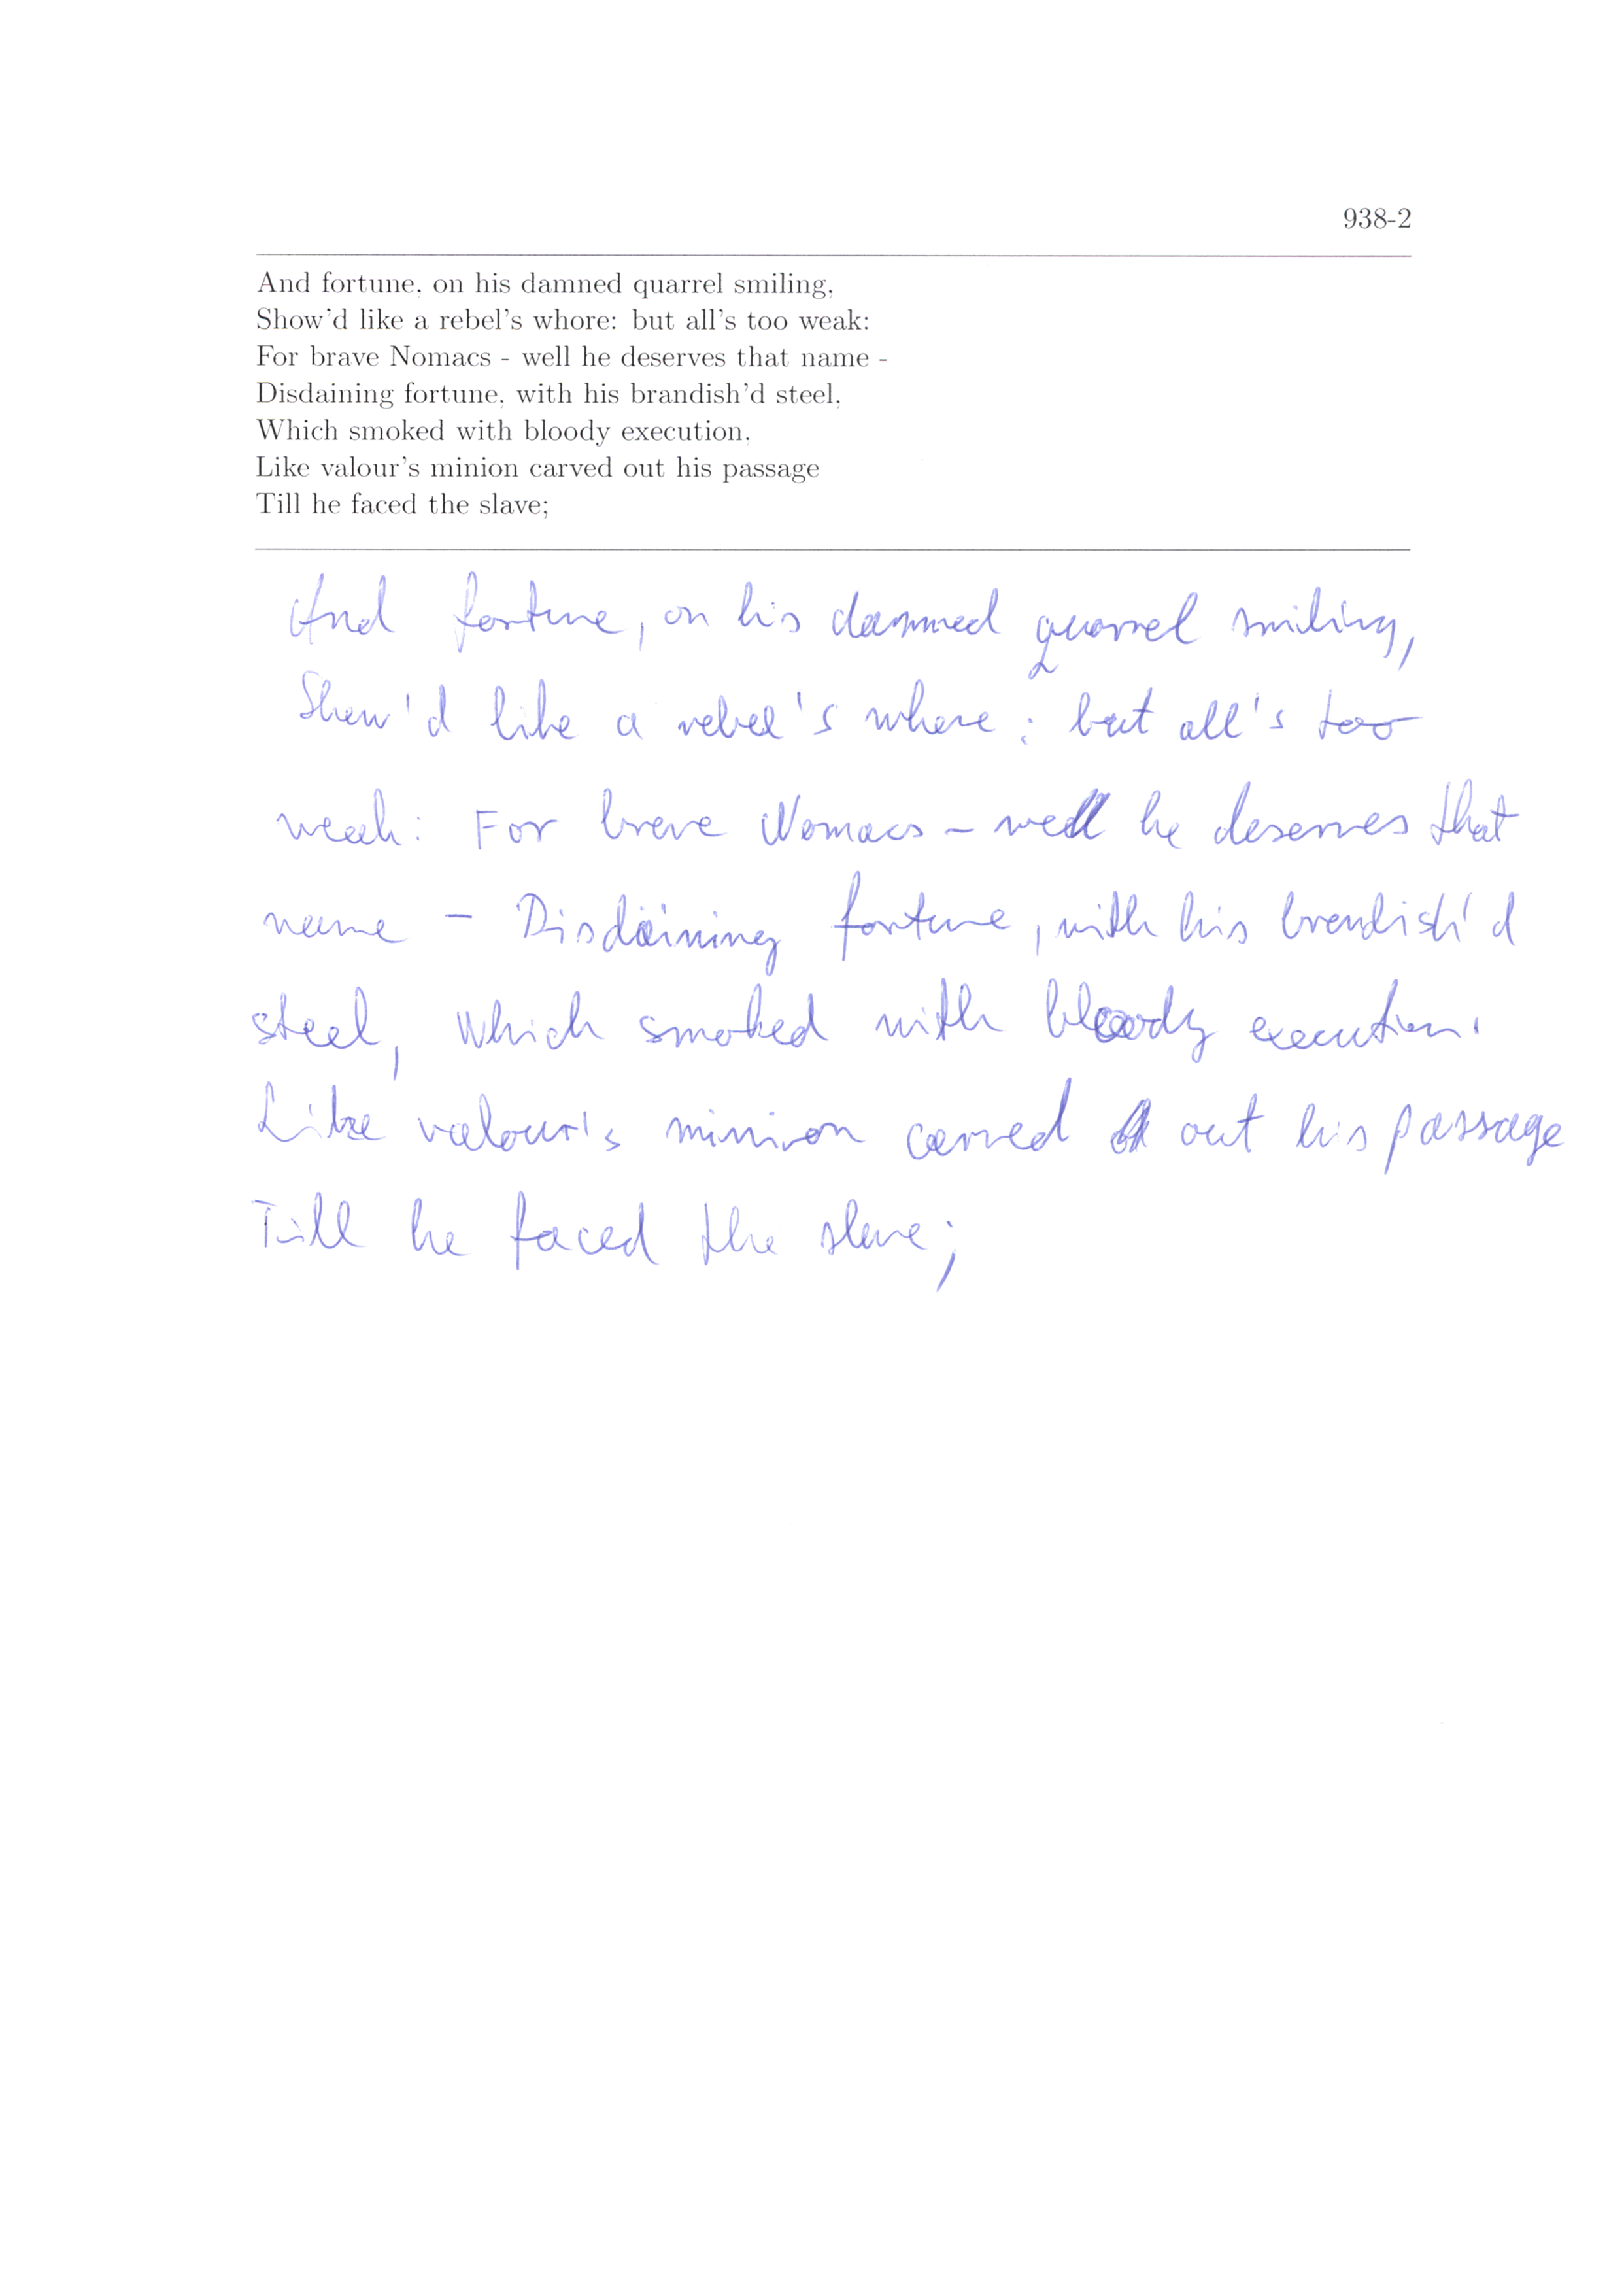 938-2
And fortune, on his damned quarrel smiling,
Show'd like a rebel's whore: but all's too weak:
For brave Nomacs - well he deserves that name -
Disdaining fortune, with his brandish'd steel,
Which smoked with bloody execution,
Like valour's minion carved out his passage
Till he faced the slave;
And fortune, on his damned quarrel smiling,
Show'd like a rebel's whore: but all's too
weak: For brave Nomacs - well he deserves that
name - Disdaining fortune, with his brandish'd
steel, Which smoked with bloody execution.
Like valour's minion carved out his passage
Till he faced the slave;